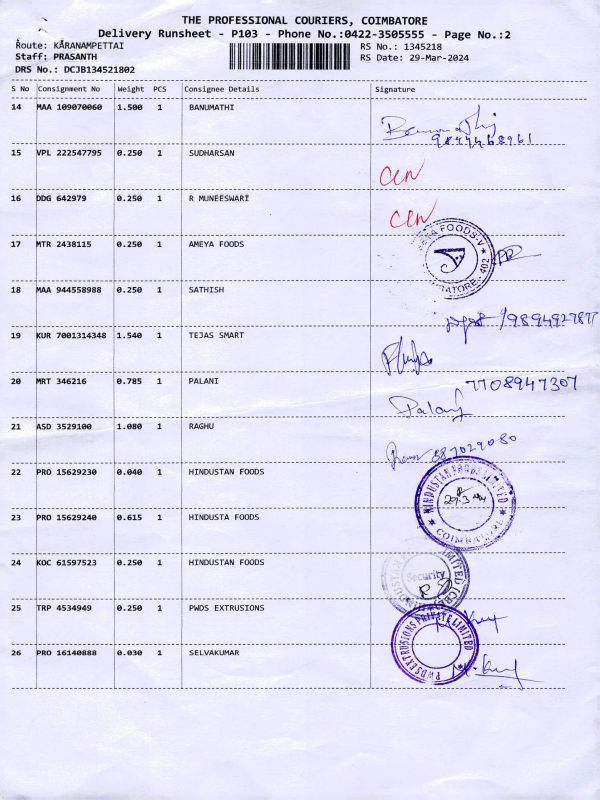 THE PROFESSIONAL COURIERS, COIMBATORE
Delivery Runsheet - P103 - Phone No.:0422-3505555 - Page No.:2
Route: KARANAMPETTAI
RS No.: 1345218
Staff: PRASANTH
RS Date: 29-Mar-2024
DRS No.: DCJB134521802
S No Consignment No Weight PCS Consignee Details Signature
14 MAA 109070060 1.500 1 BANUMATHI
15 VPL 222547795 0.250 1 SUDHARSAN
16 DDG 642979 0.250 1 R MUNEESWARI
17 MTR 2438115 0.250 1 AMEYA FOODS
18 MAA 944558988 0.250 1 SATHISH
19 KUR 7001314348 1.540 1 TEJAS SMART
20 MRT 346216 0.785 1 PALANI
7708947307
Palani
21 ASD 3529100 1.080 1 RAGHU
22 PRO 15629230 0.040 1 HINDUSTAN FOODS
HINDUSTAN FOODS LIMITED
COIMBATORE
23 PRO 15629240 0.615 1 HINDUSTA FOODS
24 KOC 61597523 0.250 1 HINDUSTAN FOODS
Security
25 TRP 4534949 0.250 1 PWDS EXTRUSIONS
PWDS EXTRUSIONS PRIVATE LIMITED
26 PRO 16140888 0.030 1 SELVAKUMAR